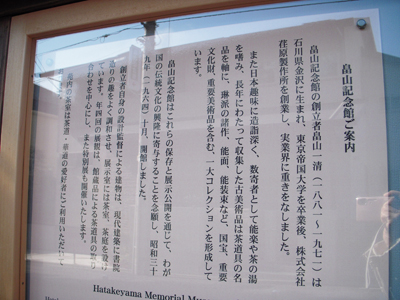 畠山記念館ご案内
畠山記念館の創立者畠山一清(一八八一〜一九七一)は
石川県金沢に生まれ、東京帝国大学を卒業後、株式会社
荏原製作所を創業し、実業界に重きをなしました。
また日本趣味に造詣深く、数寄者として能楽や茶の湯
を嗜み、長年にわたって収集した古美術品は茶道具の名
品を軸に、琳派の諸作、能面、能装束など、国宝、重要
文化財、重要美術品を含む、一大コレクションを形成して
います。
畠山記念館はこれらの保存と展示公開を通じて、わが
国の伝統文化の興隆に寄与することを念願し、昭和三十
九年(一九六四)十月、開館しました。
創立者自身の設計監督による建物は、現代建築に書院
造りの趣をよく調和させ、展示室には茶室、茶庭を設け
ています。年四回の展観は、館蔵品による茶道具の取り
合わせを中心にし、また特別展も開催いたします。
苑内の茶室は茶道・華道の愛好者にご利用いただいて
Hatakeyama Memorial